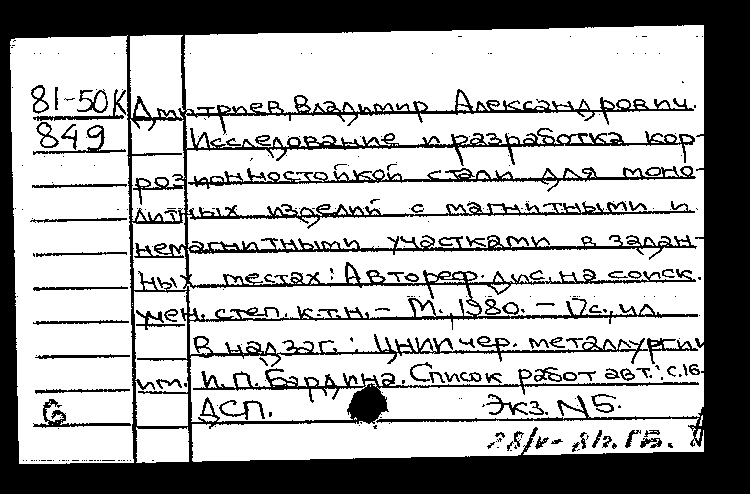 81-50К Дмитриев, Владимир Александрович.
849 Исследование и разработка кор-
розионностойкой стали для моно-
литных изделий с магнитными и
немагнитными участками в задан-
ных местах: Автореф. дис. на соиск.
учен. степ. к.т.н. - М., 1980. - 17с., ил.
В надзаг.: ЦНИИ чер. металлургии
им. И.П. Бардина. Список работ авт.: с.16-
6 ДСП. Экз. N5.
28/V- 81г. ГБ.